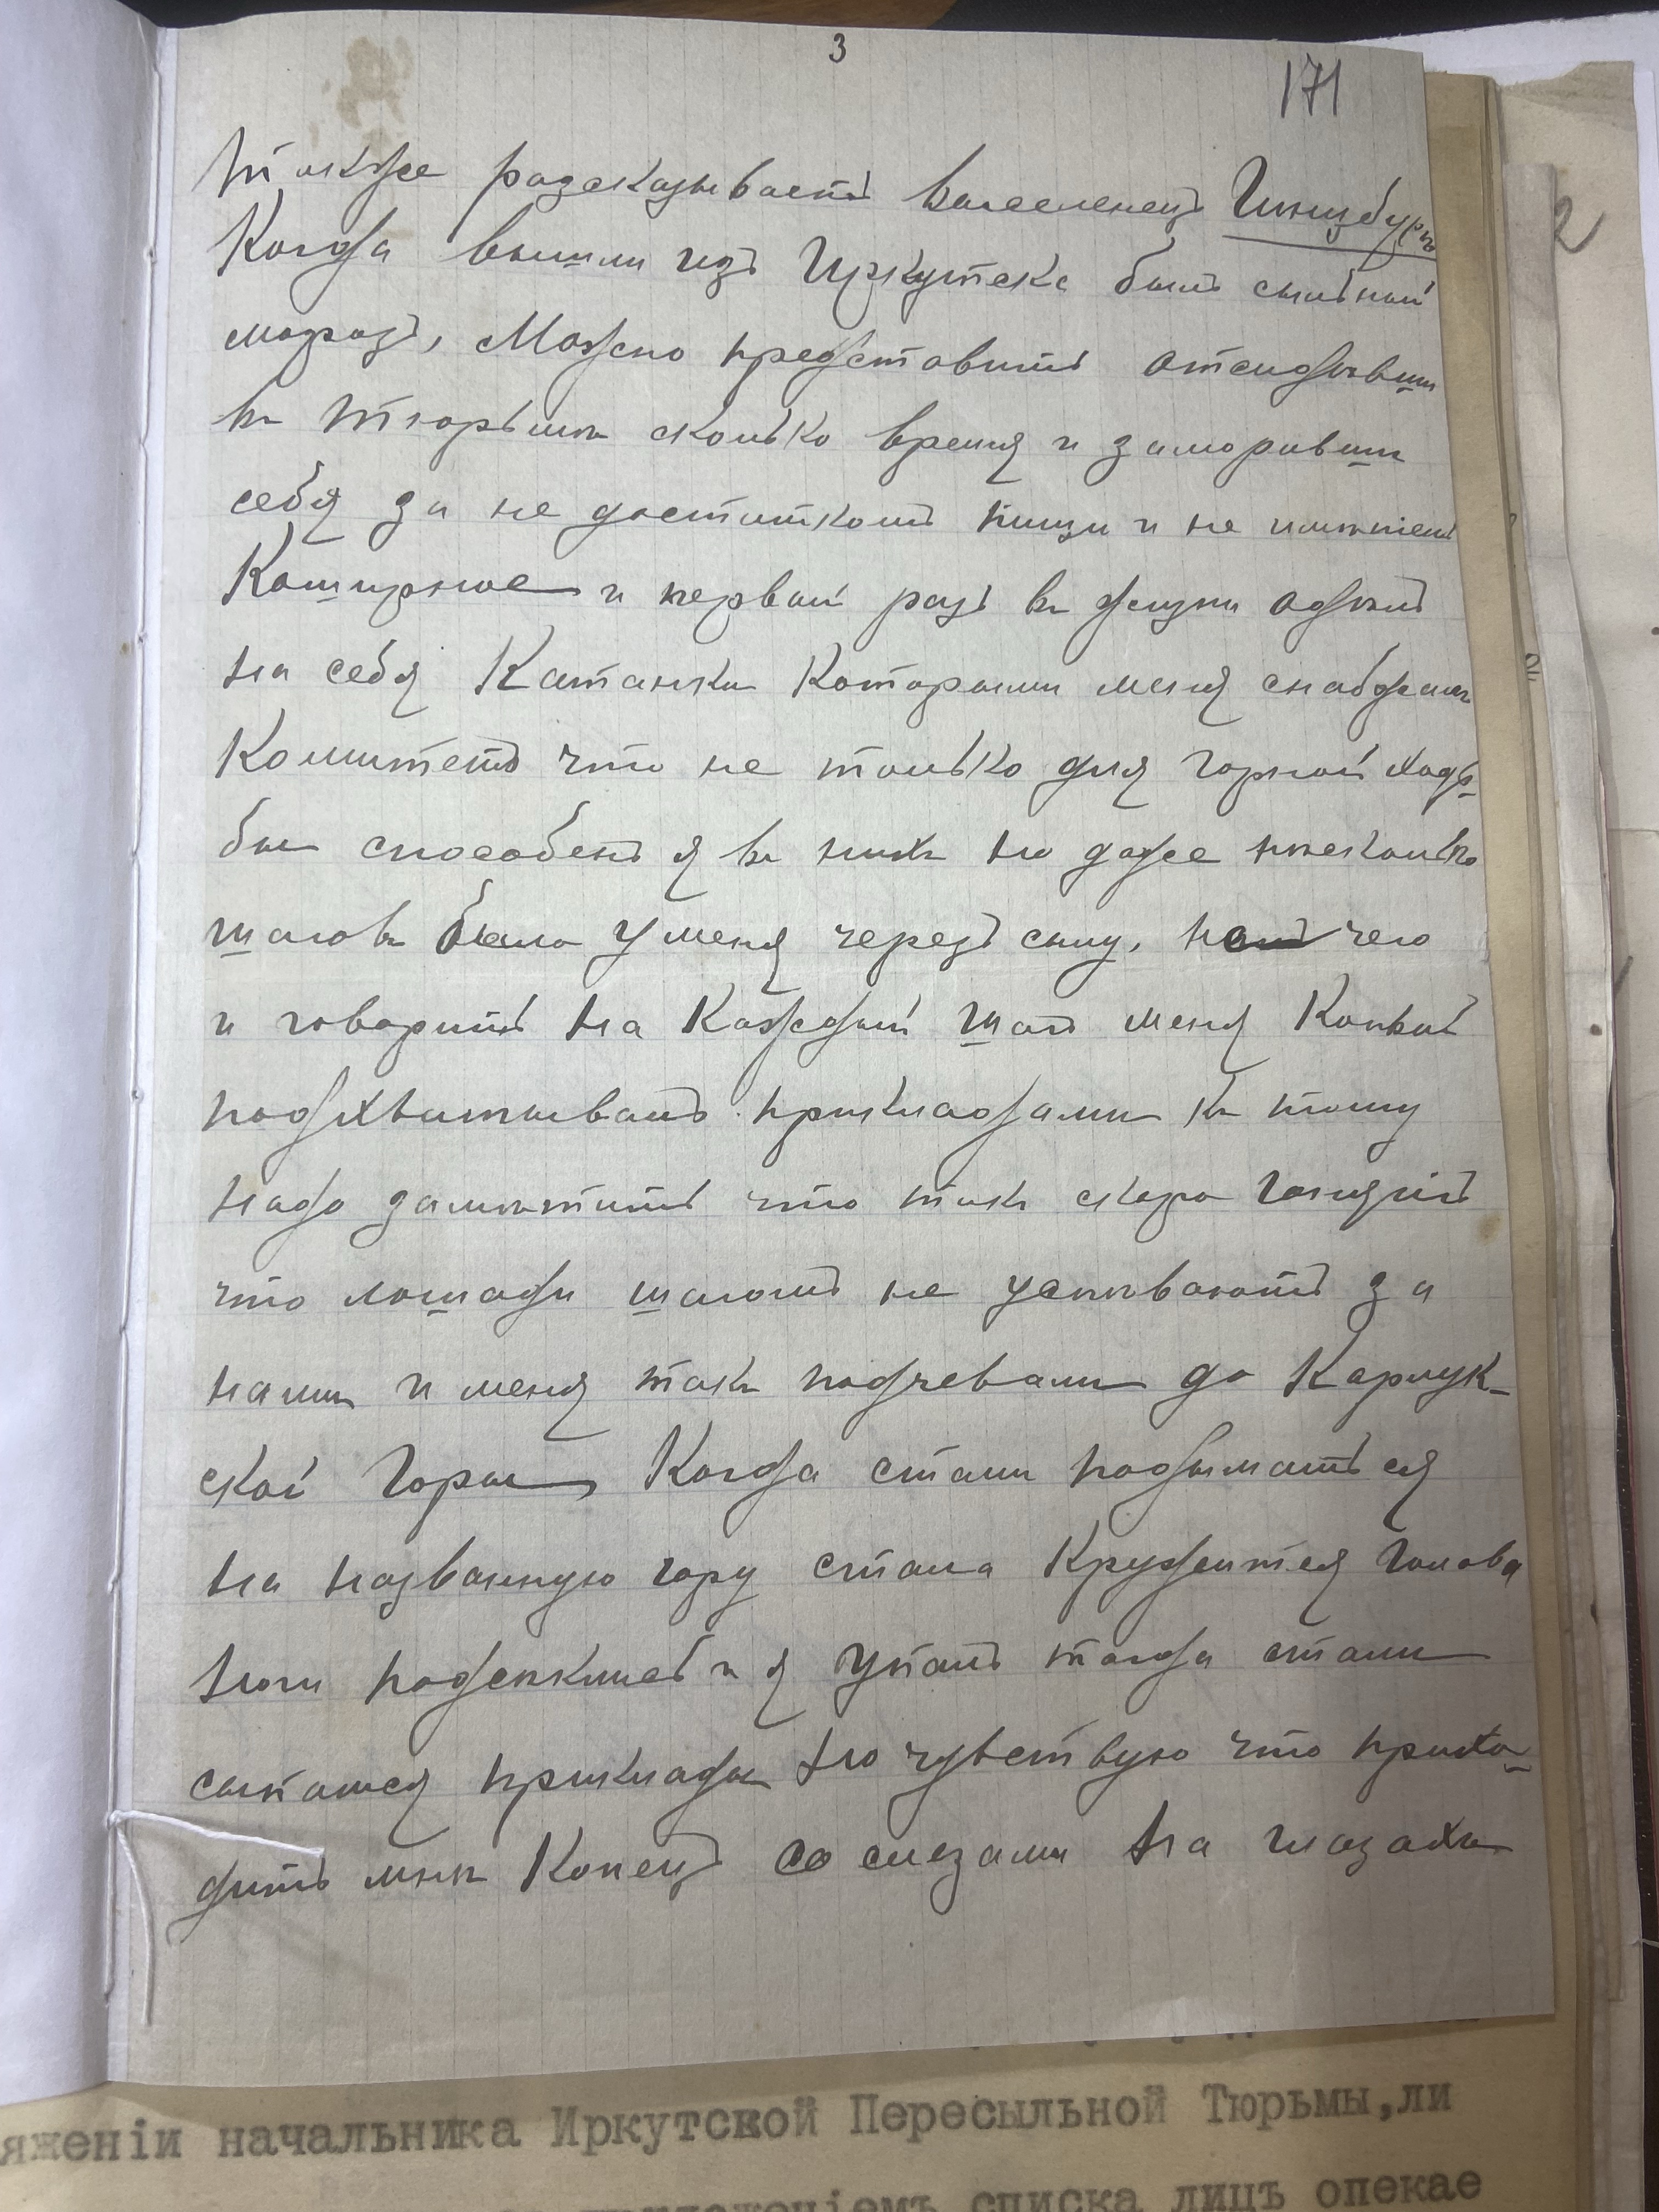 3
171
также разсказываетъ выселенецъ Гинцбургъ
Когда вышли изъ Иркутска былъ сильный
морозъ, Можно представить отсидѣвши
въ тюрьмѣ сколько время и заморивши
себя за не достаткомъ пищи и не имѣтемъ
и первый разъ въ жизни одѣлъ
на себя Катанки Которыми меня снабжалъ
Комитетъ что не только для горной ходь-
бы способенъ я въ нихъ но даже нѣсколько
шаговъ было у меня черезъ силу, чего
и говорить на Каждый шагъ меня Конвой
подхватывалъ прикладами къ тому
надо замѣтить что такъ скоро
что лошади шагомъ не успѣваютъ за
нами и меня такъ подчевали до Карлук-
ской Горы, Когда стали подыматься
на названную гору стала Кружится Голова
ноги подсѣклись и я упалъ тогда стали
сыпатся приклады но чувствую что прихо-
дитъ мнѣ Конецъ со слезами на глазахъ
2
яженіи начальника Иркутской Пересыльной Тюрьмы,ли
приложеніемъ списка лицъ опекае